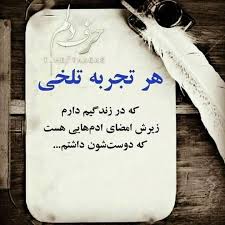 حرف دلم
هر تجربه تلخی
که در زندگیم دارم
زیرش امضای ادم‌هایی هست
که دوست‌شون داشتم...